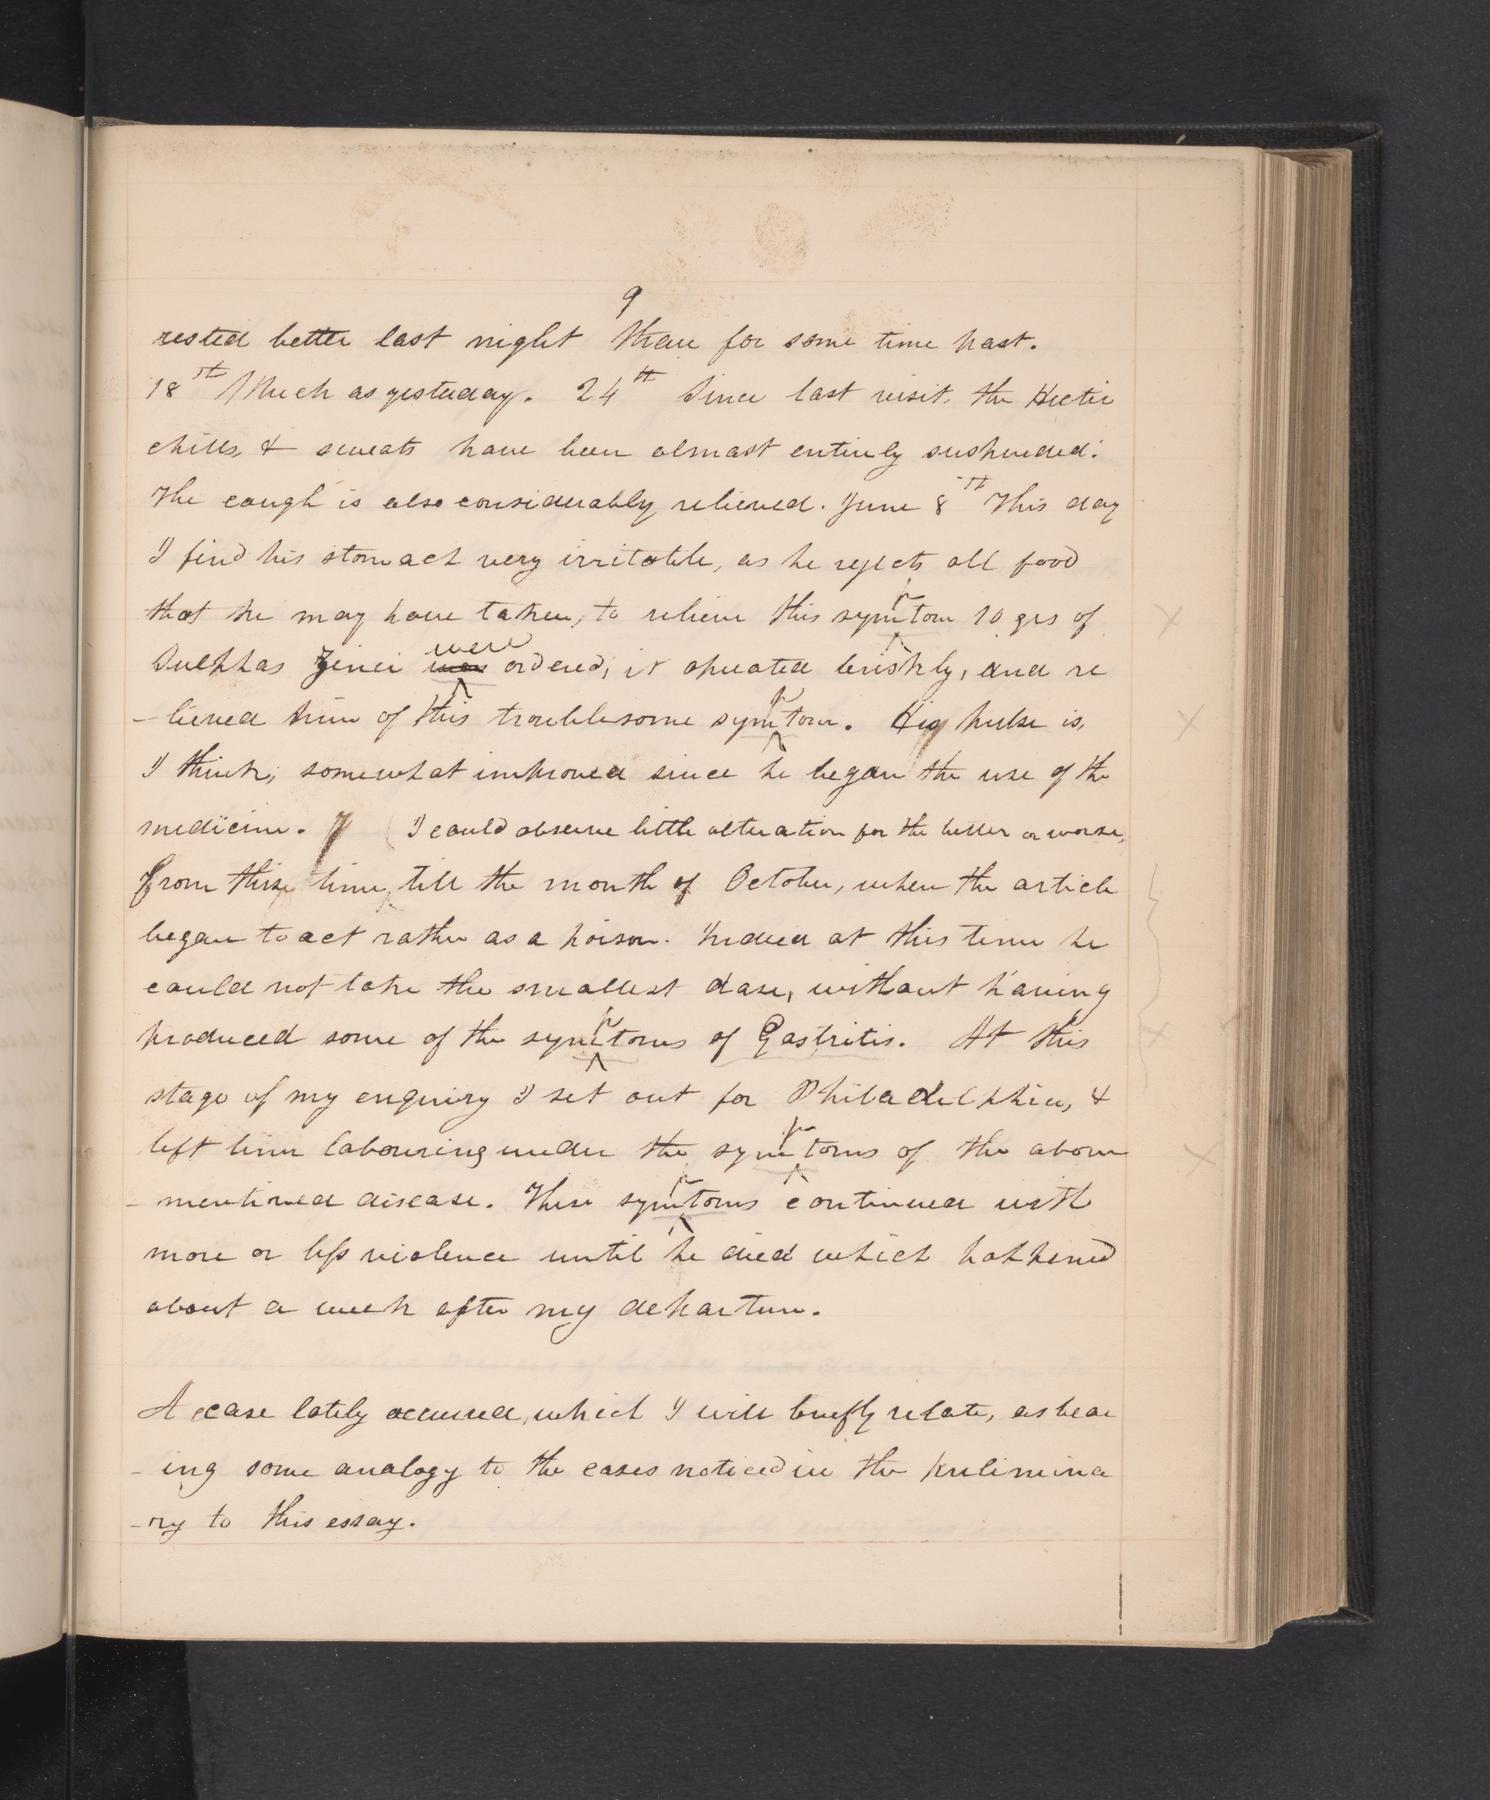 9
rested better last night than for some time past.
18st Much as yesterday. 24th Since last visit, the Hectic
chills, & sweats have been almost entirely suspended.
The cough is also considerably relieved. June 8th This day
I find his stomach very irritable, as he rejects all food
that he may have taken, to relieve this symptom 10 grs of
Sulphas Zinci were ordered; it operated briskly, and re
-lieved him of this troublesome symptom. His pulse is,
I think, somewhat improved since he began the use of the
medicine. I could observe little alteration for the better or worse,
From this time, till the month of October, when the article
began to act rather as a poison. Indeed at this time he
could not take the smallest dose, without having
produced some of the symptoms of Gastritis. At this
stage of my enquiry I set out for Philadelphia, &
left him labouring under the symptoms of the above
-mentioned disease. These symptoms continued with
more or less violence until he died which happened
about a week after my departure.
A case lately occurred, which I will briefly relate, as bear
-ing some analogy to the cases noticed in the prelimina
-ry to this essay.